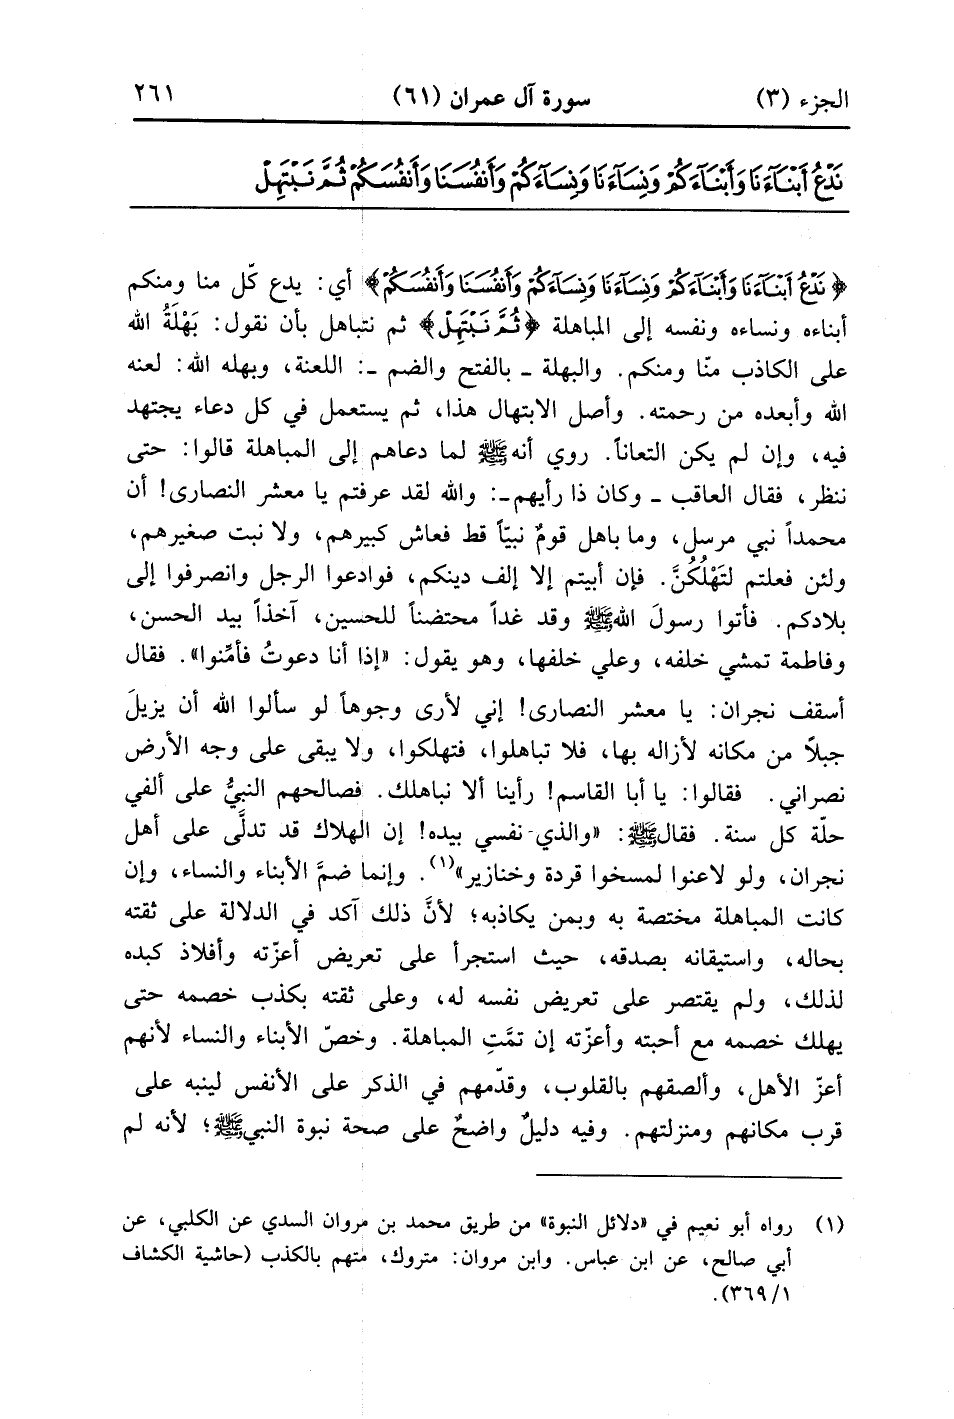 الجزء (٣) سورة آل عمران (٦١) ٢٦١
نَدْعُ أَبْنَآءَنَا وَأَبْنَآءَكُمْ وَنِسَآءَنَا وَنِسَآءَكُمْ وَأَنفُسَنَا وَأَنفُسَكُمْ ثُمَّ نَبْتَهِلْ
﴿نَدْعُ أَبْنَآءَنَا وَأَبْنَآءَكُمْ وَنِسَآءَنَا وَنِسَآءَكُمْ وَأَنفُسَنَا وَأَنفُسَكُمْ﴾ أي: يدع كّل منا ومنكم
أبناءه ونساءه ونفسه إلى المباهلة ﴿ثُمَّ نَبْتَهِلْ﴾ ثم نتباهل بأن نقول: بَهْلَةُ الله
على الكاذب منّا ومنكم. والبهلة ـ بالفتح والضم ـ: اللعنة، وبهله الله: لعنه
الله وأبعده من رحمته. وأصل الابتهال هذا، ثم يستعمل في كل دعاء يجتهد
فيه، وإن لم يكن التعاناً. روي أنه ﷺ لما دعاهم إلى المباهلة قالوا: حتى
ننظر، فقال العاقب ـ وكان ذا رأيهم ـ: والله لقد عرفتم يا معشر النصارى! أن
محمداً نبي مرسل، وما باهل قومٌ نبيّاً قط فعاش كبيرهم، ولا نبت صغيرهم،
ولئن فعلتم لتَهْلُكُنَّ. فإن أبيتم إلا إلف دينكم، فوادعوا الرجل وانصرفوا إلى
بلادكم. فأتوا رسولَ الله ﷺ وقد غداً محتضناً للحسين، آخذاً بيد الحسن،
وفاطمة تمشي خلفه، وعلي خلفها، وهو يقول: «إذا أنا دعوتُ فأمِّنوا». فقال
أسقف نجران: يا معشر النصارى! إني لأرى وجوهاً لو سألوا الله أن يزيلَ
جبلاً من مكانه لأزاله بها، فلا تباهلوا، فتهلكوا، ولا يبقى على وجه الأرض
نصراني. فقالوا: يا أبا القاسم! رأينا ألا نباهلك. فصالحهم النبيُّ على ألفي
حلّة كل سنة. فقال ﷺ: «والذي نفسي بيده! إن الهلاك قد تدلَّى على أهل
نجران، ولو لاعنوا لمسخوا قردة وخنازير»(١). وإنما ضمَّ الأبناء والنساء، وإن
كانت المباهلة مختصة به وبمن يكاذبه؛ لأنَّ ذلك آكد في الدلالة على ثقته
بحاله، واستيقانه بصدقه، حيث استجرأ على تعريض أعزّته وأفلاذ كبده
لذلك، ولم يقتصر على تعريض نفسه له، وعلى ثقته بكذب خصمه حتى
يهلك خصمه مع أحبته وأعزّته إن تمَّتِ المباهلة. وخصّ الأبناء والنساء لأنهم
أعزّ الأهل، وألصقهم بالقلوب، وقدّمهم في الذكر على الأنفس لينبه على
قرب مكانهم ومنزلتهم. وفيه دليلٌ واضحٌ على صحة نبوة النبي ﷺ؛ لأنه لم
(١) رواه أبو نعيم في «دلائل النبوة» من طريق محمد بن مروان السدي عن الكلبي، عن
أبي صالح، عن ابن عباس. وابن مروان: متروك، متهم بالكذب (حاشية الكشاف
١/٣٦٩).